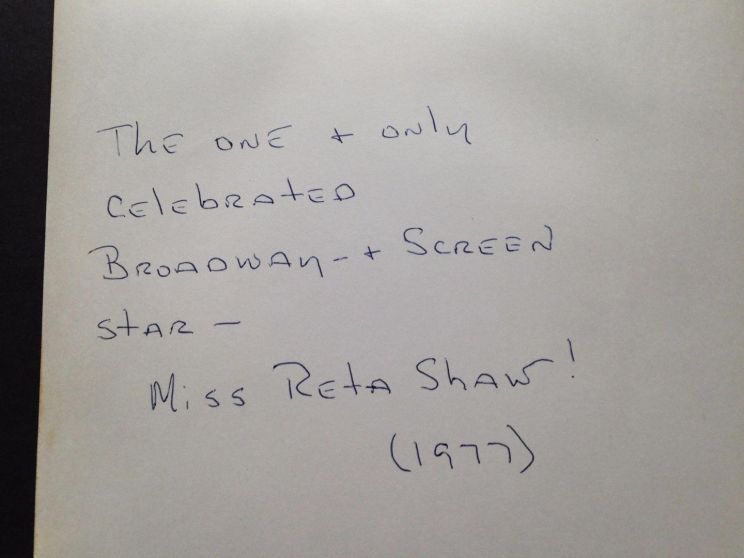 The ONE + only
Celebrated
Broadway - + Screen
star -
Miss Reta Shaw!
(1977)